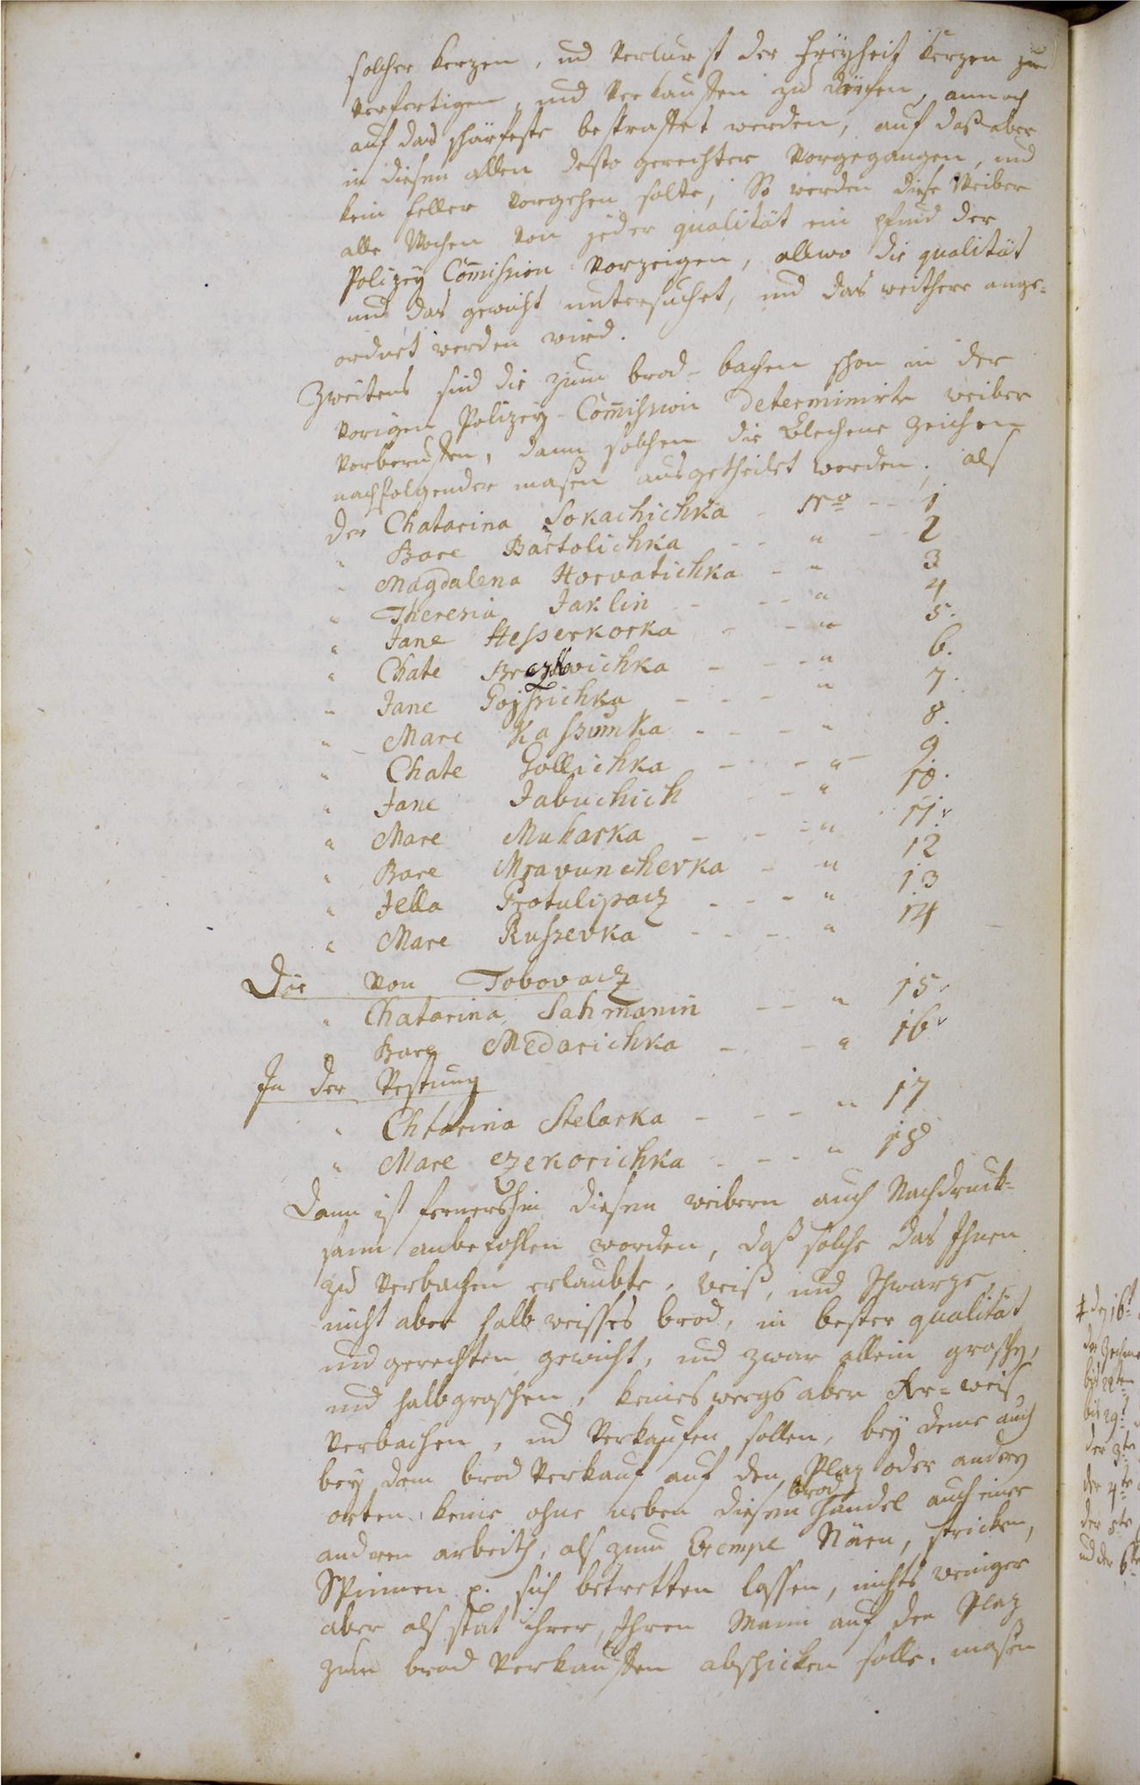 solcher kerzen, und verlurst der freyheit kerzen zu
verfertigen, und verkauffen zu därfen, annoch
auf das schärfeste bestraffet werden, auf daß aber
in diesen allen desto gerechter vorgegangen, und
kein fehler vorgehen solte, So werden diese Weiber
alle Wochen von jeder qualität ein pfund der
Polizey Com̄ission vorzeigen, allwo die qualität
und das gewicht untersuchet, und das weithere ange-
ordnet werden wird.
Zweitens sind die zum brod-bachen schon in der
vorigen Polizey-Com̄ission determinirte weiber
vorberuffen, dann solchen die Blechene zeichen
nachfolgender maßen ausgetheilet worden; als
Der Chatarina Sokachichka - Nro -- 1
" Bare Bartolichka -- " -- 2
" Magdalena Horvatichka - " 3
" Theresia Jaklin - -- " 4
" Jane Hesserkorka - -- " 5.
" Chate vichka - -- " 6.
" Jane Gojszichka - - - " 7.
" Mare Kaszumka - - - " 8.
" Chate Gollichka - - - " - 9
" Jane Jabuchich - - " 10.
" Mare Muharka - - - " 11.
" Bare Mravunchevka - " 12
" Jella Protulipacz - - - " 13
" Mare Russevka - - - " 14
Die von Tobovacz
" Chatarina Sahmanin -- " 15.
" Bare Medarichka - - " 16.
In der Vestung
" Chtarina Stelarka - - - " 17
" Mare Czekorichka - - - " 18
Dann ist fernershin diesen weibern auch Nachdruck-
sam anbefohlen worden, daß solche das Ihnen
zu verbachen erlaubte, weiß, und schwarze,
nicht aber halb weisses brod, in bester qualität
und gerechten gewicht, und zwar allein groschen,
und halbgroschen, keines weegs aber Kr-weis
verbachen, und verkaufen sollen, bey deme auch
bey dem brod verkauf auf den Plaz oder anderen
orten, keine ohne neben diesem brod handel auch einer
anderen arbeith, als zum Exempl Näen, stricken,
Spinnen p. sich betretten lassen, nichts weniger
aber als statt ihrer, Ihren Mann auf den Plaz
zum brod verkauffen abschicken solle, maßen